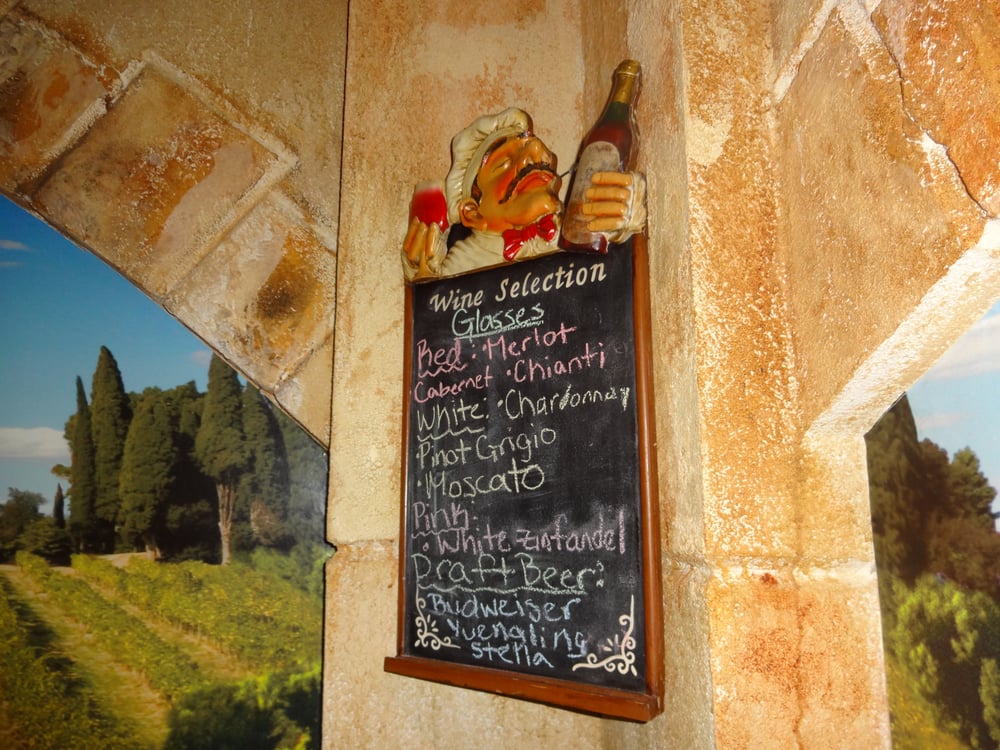 Wine Selection
Glasses
Red: • Merlot
Cabernet • Chianti
White: • Chardonnay
• Pinot Grigio
• Moscato
Pink:
• White Zinfandel
Draft Beer:
Budweiser
Yuengling
Stella